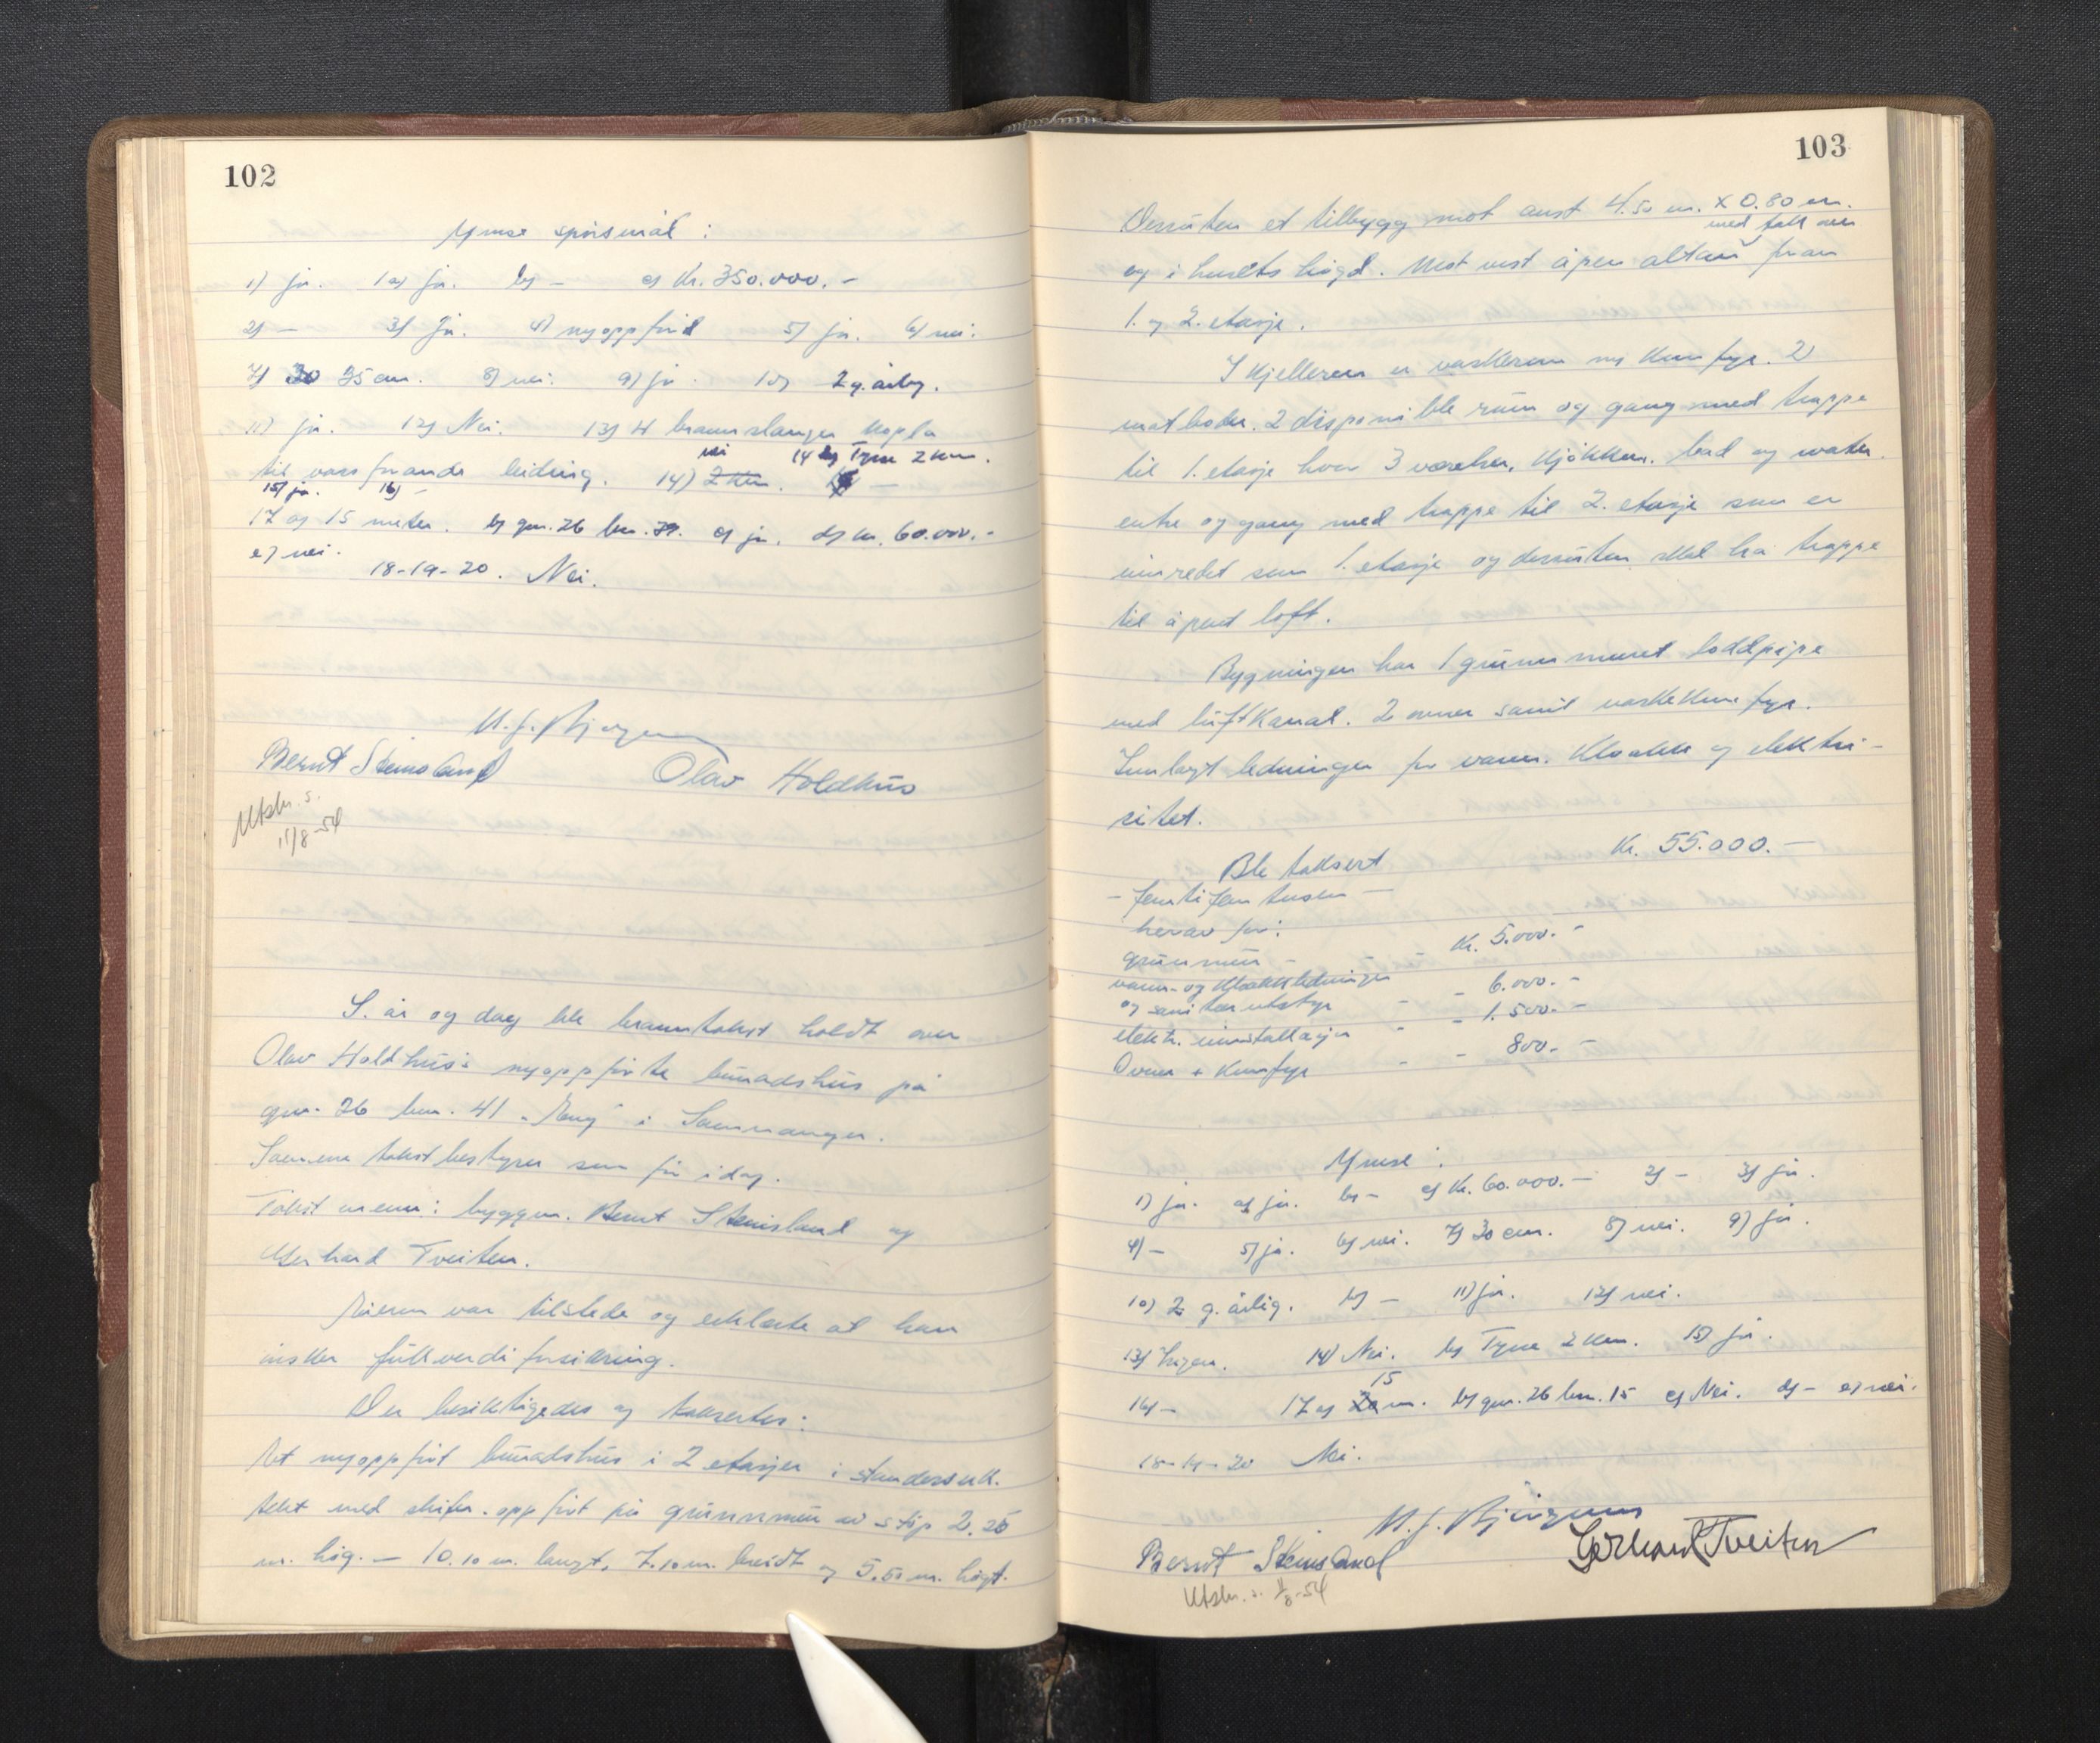 102
Ymse spørsmål:
1) ja. 1a) ja. b) – c) Kr. 350.000.–
2) – 3) Ja. 4) nyoppförd 5) ja. 6) nei.
7) 30 35 cm. 8) nei. 9) ja. 10) 2 g. årleg.
11) ja. 12) Nei. 13) 4 brannslanger kopla
nei 14 b) Tysse 2 km.
til vassförande leiding. 14) 2 km. –
15) ja. 16) –
17 a) 15 meter. b) gnr. 26 bnr. 39. c) ja. d) kr. 60.000.–
e) nei.
18-19-20. Nei.
Bernt Steinsland Olav Holdhus
Utskr. s.
11/8-54
S. år og dag ble branntakst holdt over
Olav Holdhus's nyoppförte bustadshus på
gnr. 26 bnr. 41 „Eng" i Samnanger.
Samme takstbestyrer som för idag.
Takstmenn: byggm. Bernt Steinsland og
Gerhard Tveiten.
Eieren var tilstede og erklærte at han
ønsker fullverdiforsikring.
Der besiktigedes og takseredes:
Et nyoppfört bustadshus i 2 etasjer i stenderverk.
tekt med skifer. oppfört på grunnmur av støp 2.25
m. høg. – 10.10 m. langt, 7.10 m. breidt og 5.50 m. høgt.
103
Dessuten et tilbygg mot aust 4.50 m. x 0.80 m.
med takk over
og i husets høgd. Mot vest åpen altan fran
1. og 2. etasje.
I kjelleren er vaskerum m/ komfyr. 2
matboder. 2 disponible rum og gang med trappe
til 1. etasje hvor 3 værelser, kjøkken. bad og water.
entre og gang med trappe til 2. etasje som er
innredet som 1. etasje og dessuten skal ha trappe
til åpent loft.
Bygningen har 1 grunnmuret loddpipe
med luftkanal. 2 ovner samt vaskekomfyr.
Innlagt ledninger for vann. kloakk og elektri-
sitet.
Ble taksert Kr. 55.000.–
– femtifem tusen –
herav for:
grunnmur – – Kr. 5.000.–
vann- og kloakkledninger
og sanitærutstyr – – 6.000.–
elektr. innstallasjon – – 1.500.–
Ovner + komfyr – – 800.–
Ymse:
1) ja. a) ja. b) – c) Kr. 60.000.– 2) – 3) ja.
4) – 5) ja. 6) nei. 7) 30 cm. 8) nei. 9) ja.
10) 2 g. årlig. b) – 11) ja. 12) nei.
13) Ingen. 14) Nei. b) Tysse 2 km. 15) ja.
15
16) – 17 a) 20 m. b) gnr. 26 bnr. 15 c) Nei. d) – e) nei.
18-19-20 Nei.
Bernt Steinsland Gerhard Tveiten
Utskr. s. 11/8-54